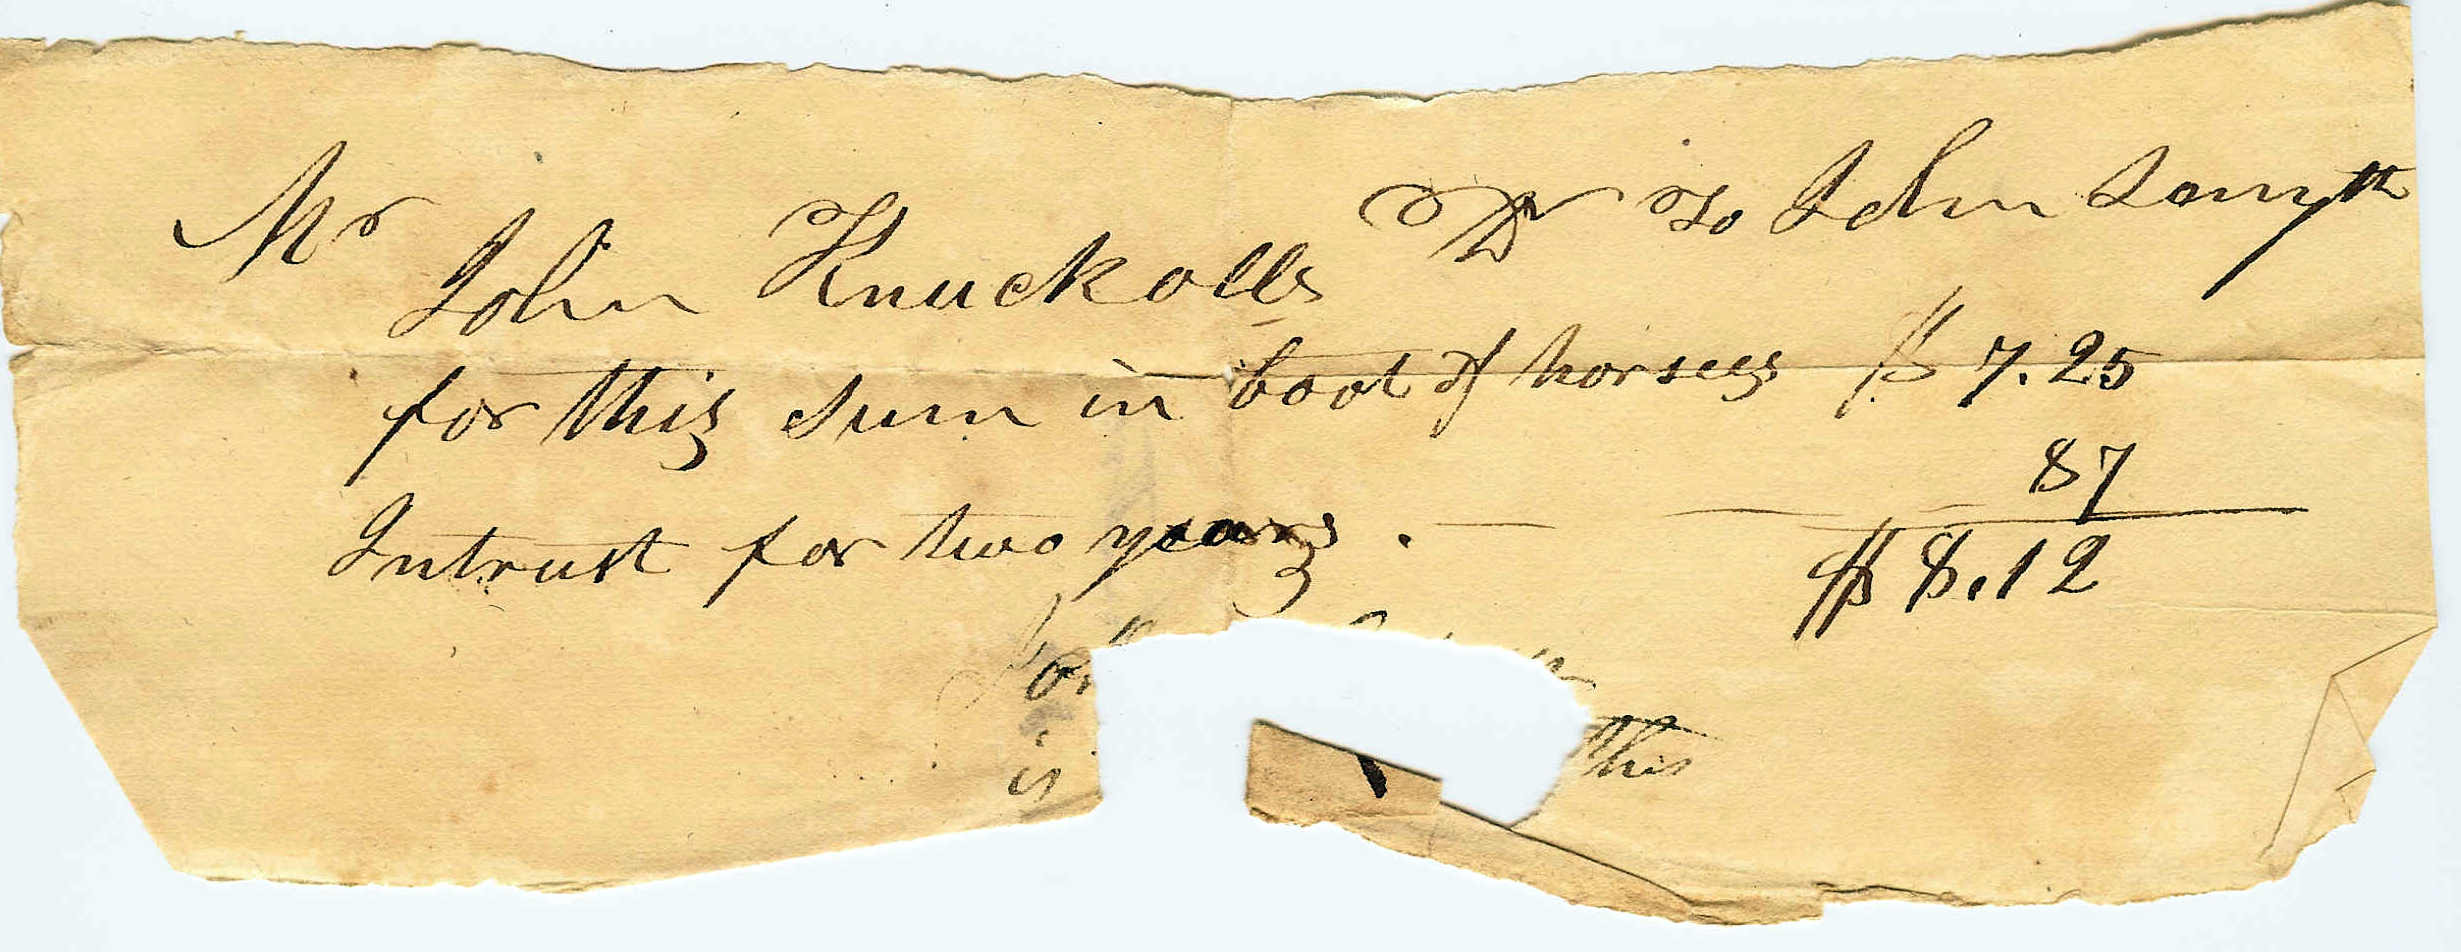 Mr John Knuckolls Dr To John Smyth
for this sum in boot of horses $ 7.25
87
Intrust for two years. $ 8.12
this